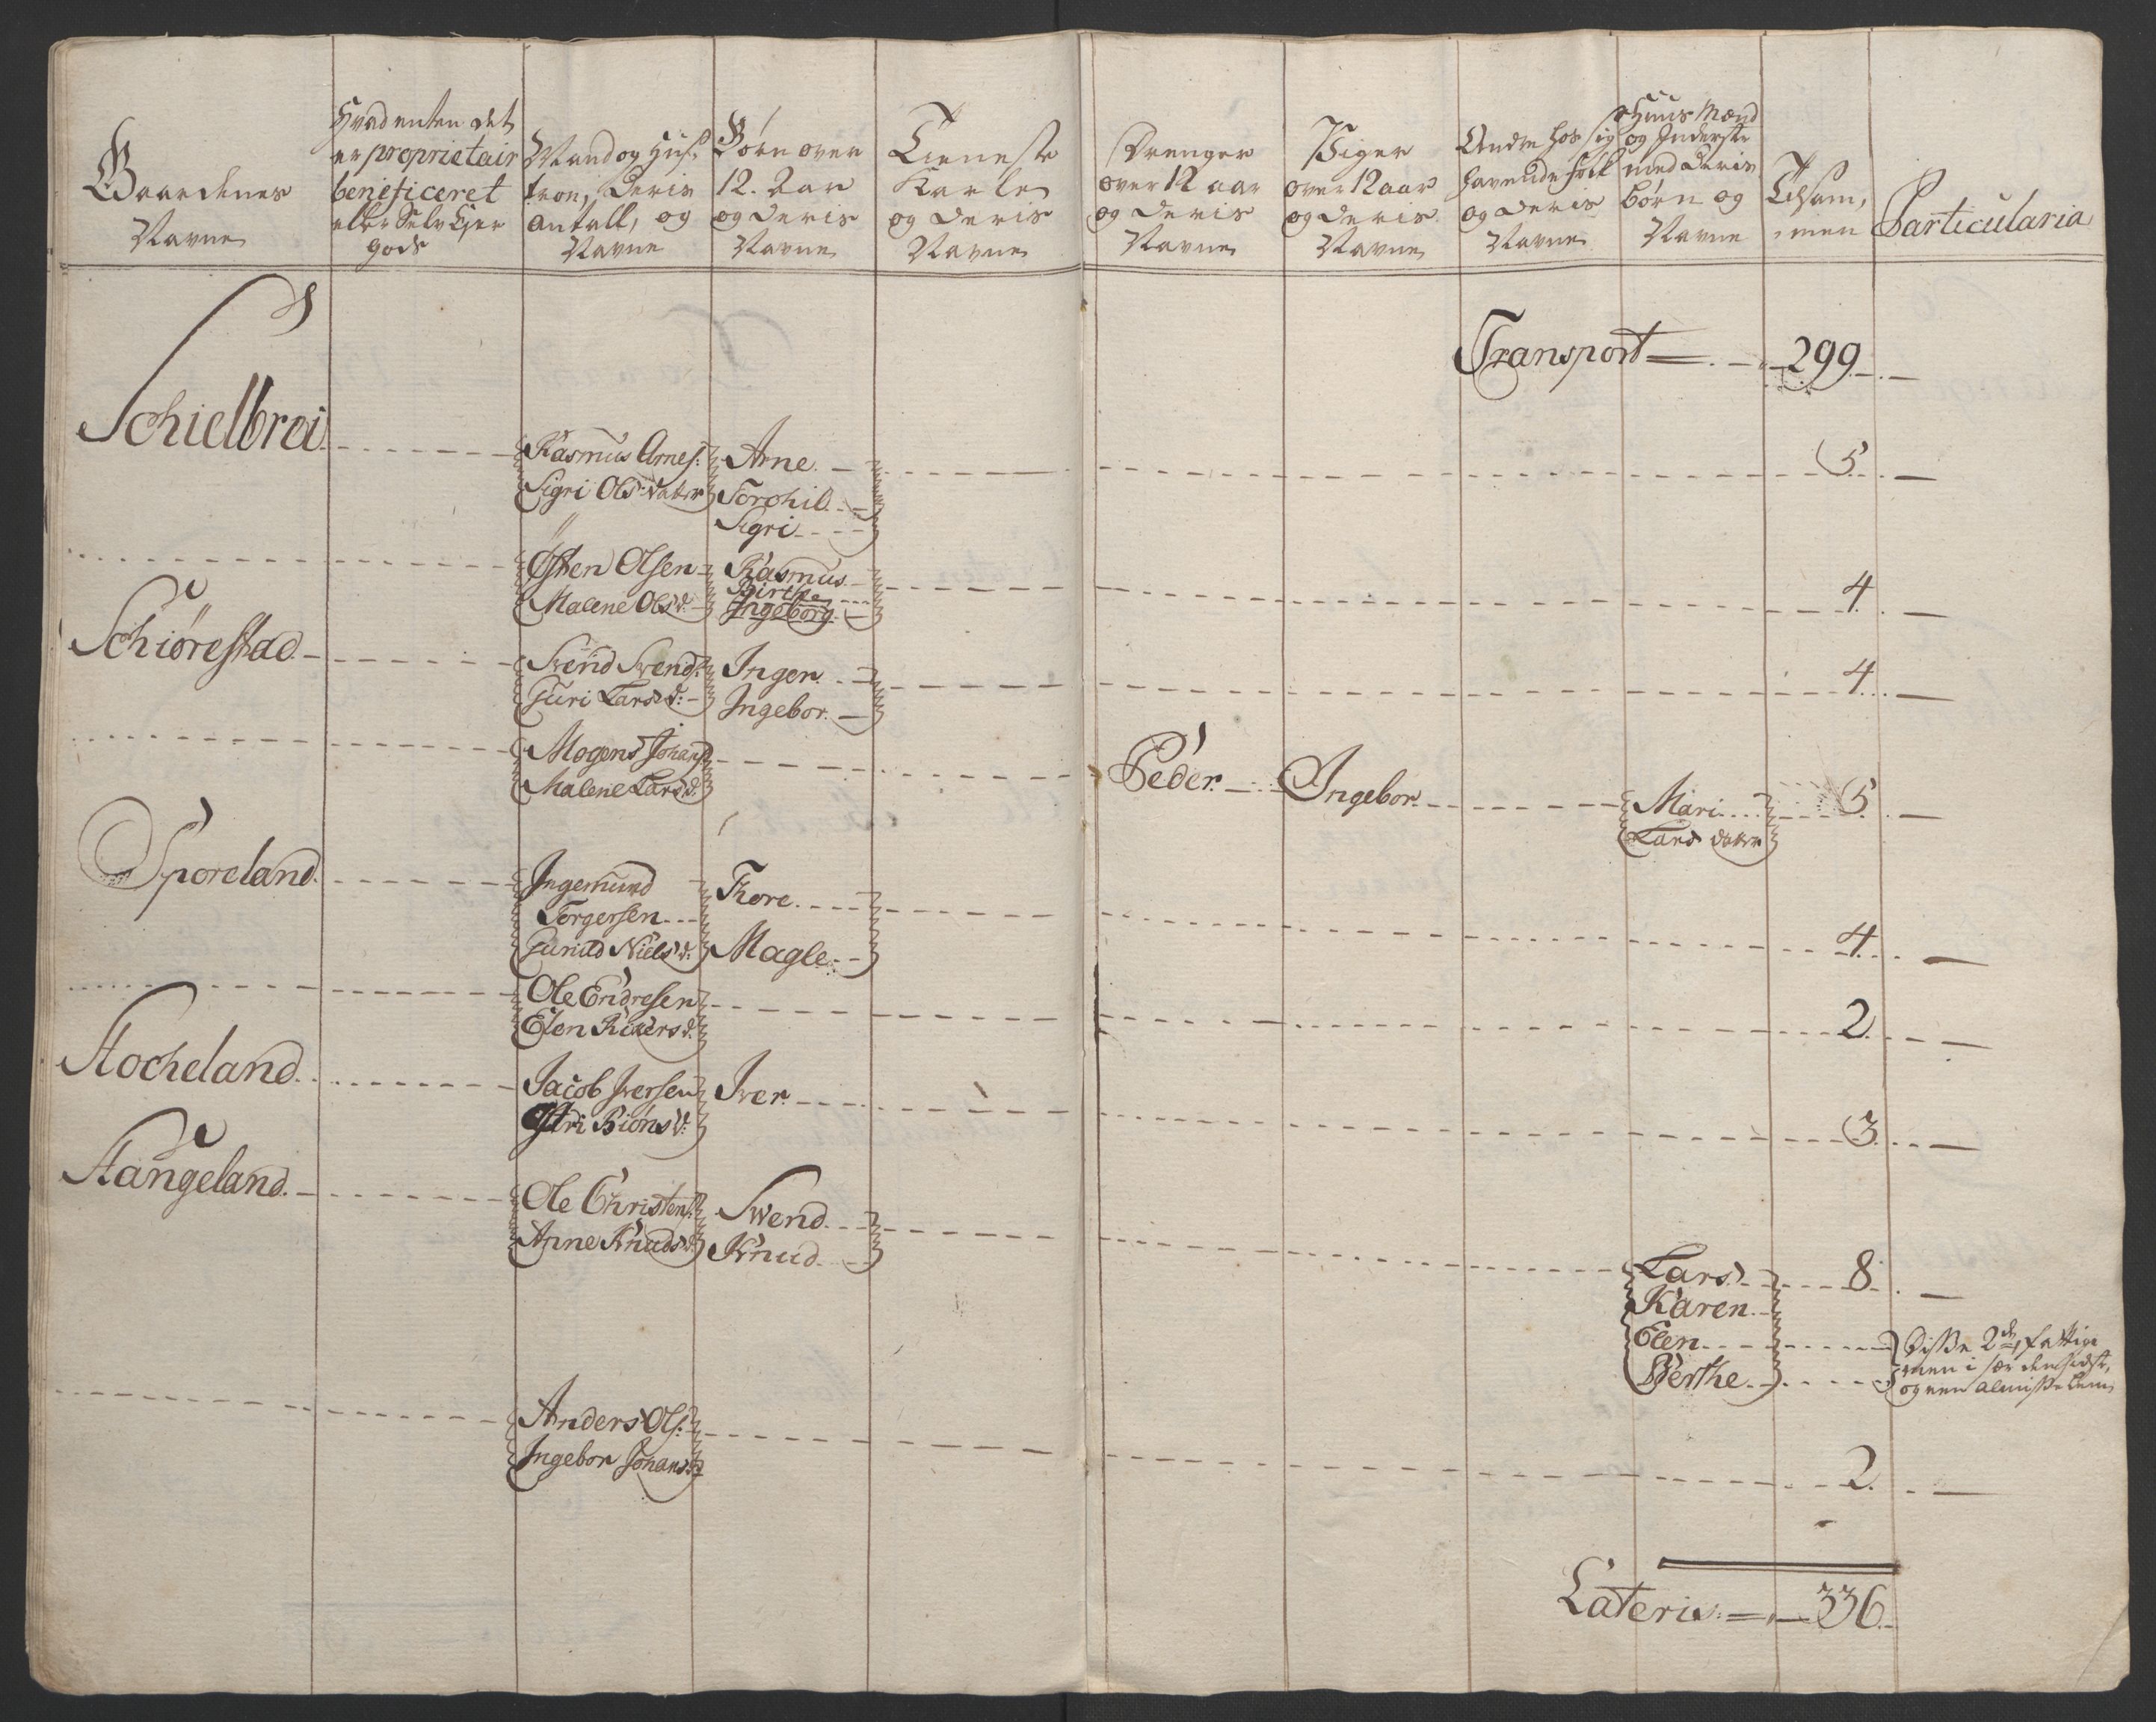 Gaardenes
Navne
Hvad enten det
er proprietair
beneficeret
eller Selv Ejer
gods
Mand og Hus,
troe, Deris
antall, og
Navne
Børn over
12. Aar
og Deris
Navne
Tieneste
Karle
og Deris
Navne
Drenger
over 12 aar
og Deris
Navne
Piger
over 12 aar
og Deris
Navne
Andre hos sig
havende folk
og Deris
Navne
Huus Mænd
og Inderste
med Deris
Børn og
Navne
Tilsam,
men
Particularia
Transport 299
Schielbrei
Rasmus Arnes: Arne 5
Sigri Ols datter Torchil
Sigri
Østen Olsen Rasmus 4
Birthe
Malene Ols d: Ingeborg
Schiørestad
Svend Svends: Inger 4
Guri Lars d: Ingebor
Mogens Johans: Peder Ingebor Mari 5
Malene Lars d: Lars datter
Sporeland
Ingemund Thore 4
Torgersen
Gunild Niels d: Magle
Ole Endresen 2
Elen Rivers d:
Stocheland
Jacob Iversen Iver 3
Astri Biøns d:
Stangeland
Ole Christens: Swend Lars 8
Anne Knuds d: Knud Karen
Elen Disse 2de, fattige
Berthe men i sær den sidste,
og een almisse lem
Anders Ols: 2
Ingebor Johans d:
Lateris 336